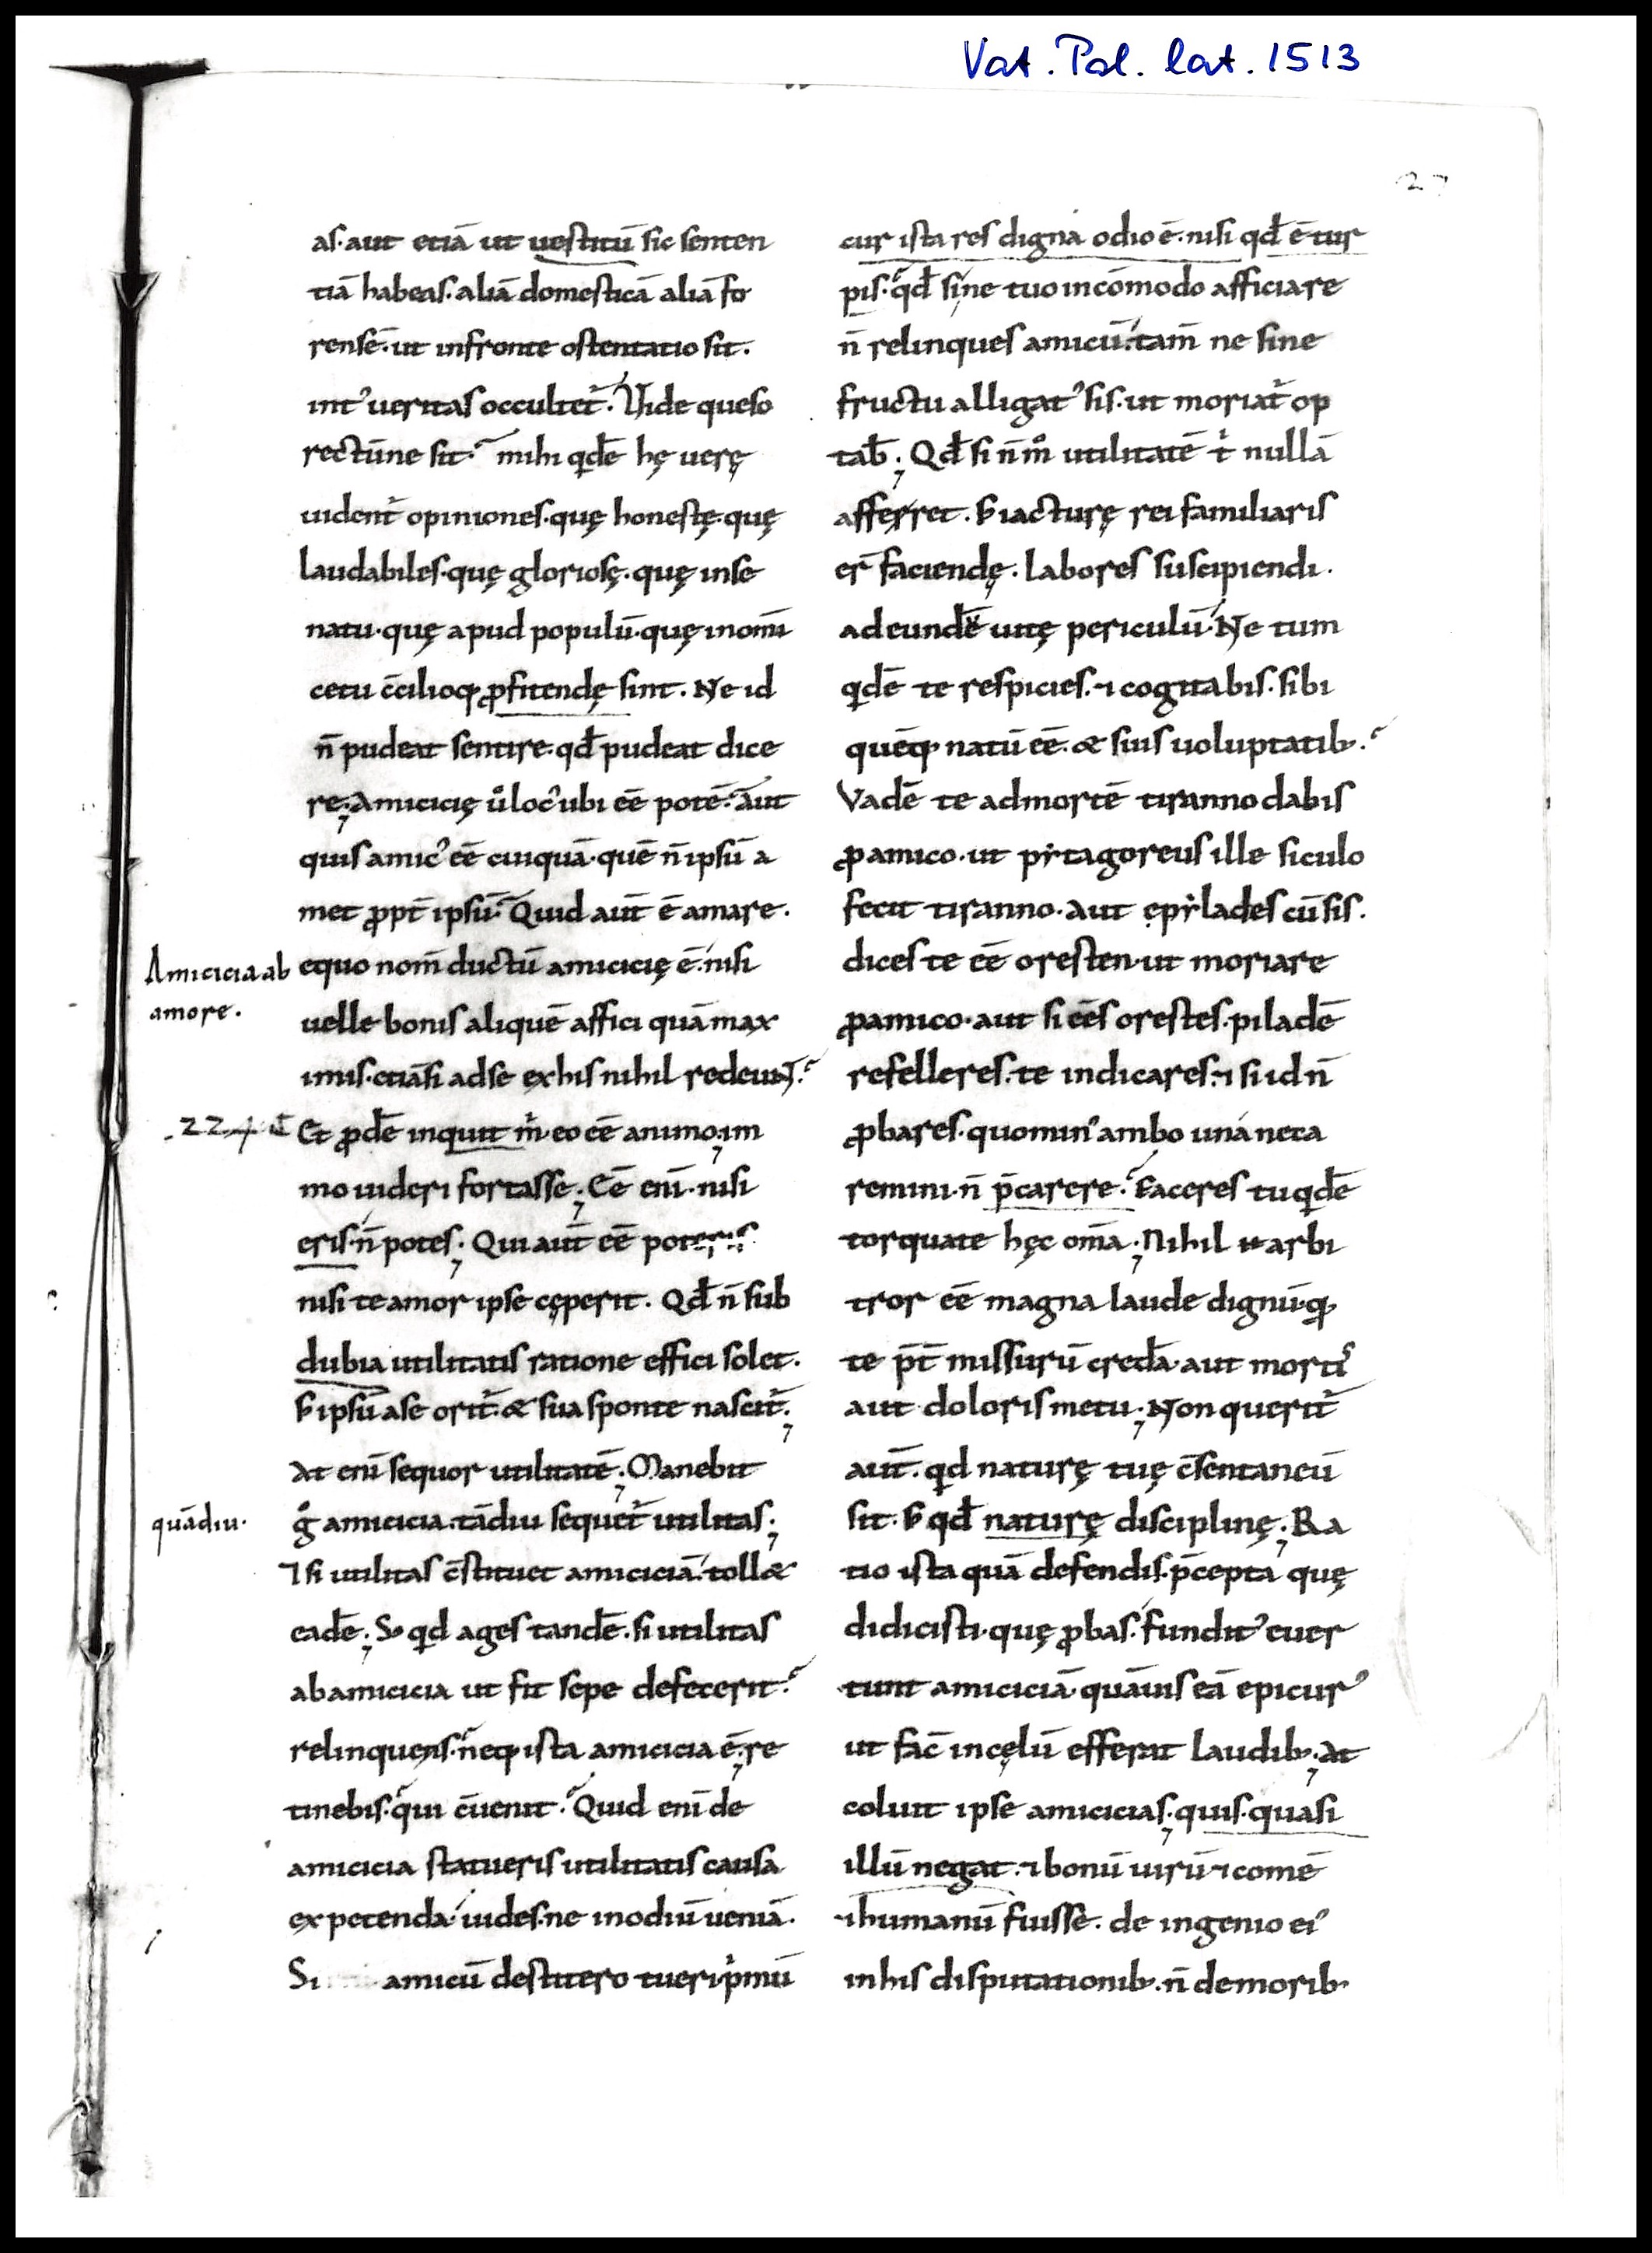 Vat. Pal. lat. 1513
27
as· aut etiā ut uestitū sic senten
tiā habeas· aliā domesticā aliā fo
rensē· ut infronte ostentatio sit·
int᾽ ueritas occultet᷑· Vide queso
rectūne sit· mihi qidē hę uerę
uident᷑ opiniones· quę honestę· quę
laudabiles· quę gloriosę· quę inse
natu· quę apud populū· quę inomī
cetu c̄cilioqꝫ ꝓfitendę sint· Ne id
n̄ pudeat sentire· qd̄ pudeat dice
re; Amicicię ů loc᾽ ubi eē potē· aut
quis amic᾽ eē cuiquā· quē n̄ ipsū a
met ꝓpt̄ ipsū· Quid aut̄ ē amare·
Amicicia ab
amore·
equo nom̄ ductū amicicię ē· nisi
uelle bonis aliquē affici quā max
imis· etiāsi adse exhis nihil redeunt·
224
Et ꝓdē inquit m͛· eo eē animo; im
mo uideri fortasse; Eē enī· nisi
eris· n̄ potes; Qui aut̄ eē poteris
nisi te amor ipse cęperit· Qd̄ n̄ sub
dubia utilitatis ratione effici solet·
s̄ ipsū ase orit᷑· & sua sponte nascit᷑;
At enī sequor utilitatē; Manebit
quādiu·
g̊ amicicia· tādiu sequet᷑ utilitas;
⁊ si utilitas c̄stituet amiciciā· toll&
eadē; S; qid ages tandē· si utilitas
ab amicicia ut fit sepe defecerit·
relinquens· neqꝫ ista amicicia ē; re
tinebis· qui c̄uenit· Quid enī de
amicicia statueris utilitatis causa
expetenda· uides· ne inodiū ueniā·
Si amicū destitero tueri p͛mū
cur ista res digna odio ē· nisi qd̄ ē tur
pis· qd̄ sine tuo incōmodo afficiare
n̄ relinques amicū· tam̄ ne sine
fructu alligat᾽ sis· ut moriat᷑ op
tab̄; Qd̄ si n̄ m̊ utilitatē t͛ nullā
afferret· s̄ iacturę rei familiaris
er̄ faciendę· labores suscipiendi·
adeundē uitę periculū· Ne tum
qidē te respicies· ⁊ cogitabis· sibi
quēqꝫ natū eē· & suis uoluptatibꝫ·
Vadē te admortē tiranno dabis
ꝓamico· ut pẏtagoreus ille siculo
fecit tiranno· Aut ępẏlades cū sis·
dices te eē oresten· ut moriare
ꝓamico· aut si eēs orestes· piladē
refelleres· te indicares· ⁊ si id n̄
ꝓbares· quomin᾽ ambo una neca
remini· n̄ p̄carere· Faceres tu qidē
torquate hęc om̄a; Nihil arbi
tror eē magna laude dignū· qꝫ
te p̄t̄ missurū credā· aut mortis
aut doloris metu; Non querit᷑
aut̄· qid naturę tuę c̄sentaneū
sit· s̄ qd̄ naturę disciplinę; Ra
tio ista quā defendis· p̄cepta quę
didicisti· quę ꝓbas· fundit᾽ euer
tunt amiciciā· quāuis eā epicur᾽
ut fac̄ incęlū efferat laudibꝫ; At
coluit ipse amicicias; quis· quasi
illū negat· ⁊ bonū uirū ⁊ comē
⁊ humanū fuisse· de ingenio ei᾽
inhis disputationibꝫ· n̄ de moribꝫ